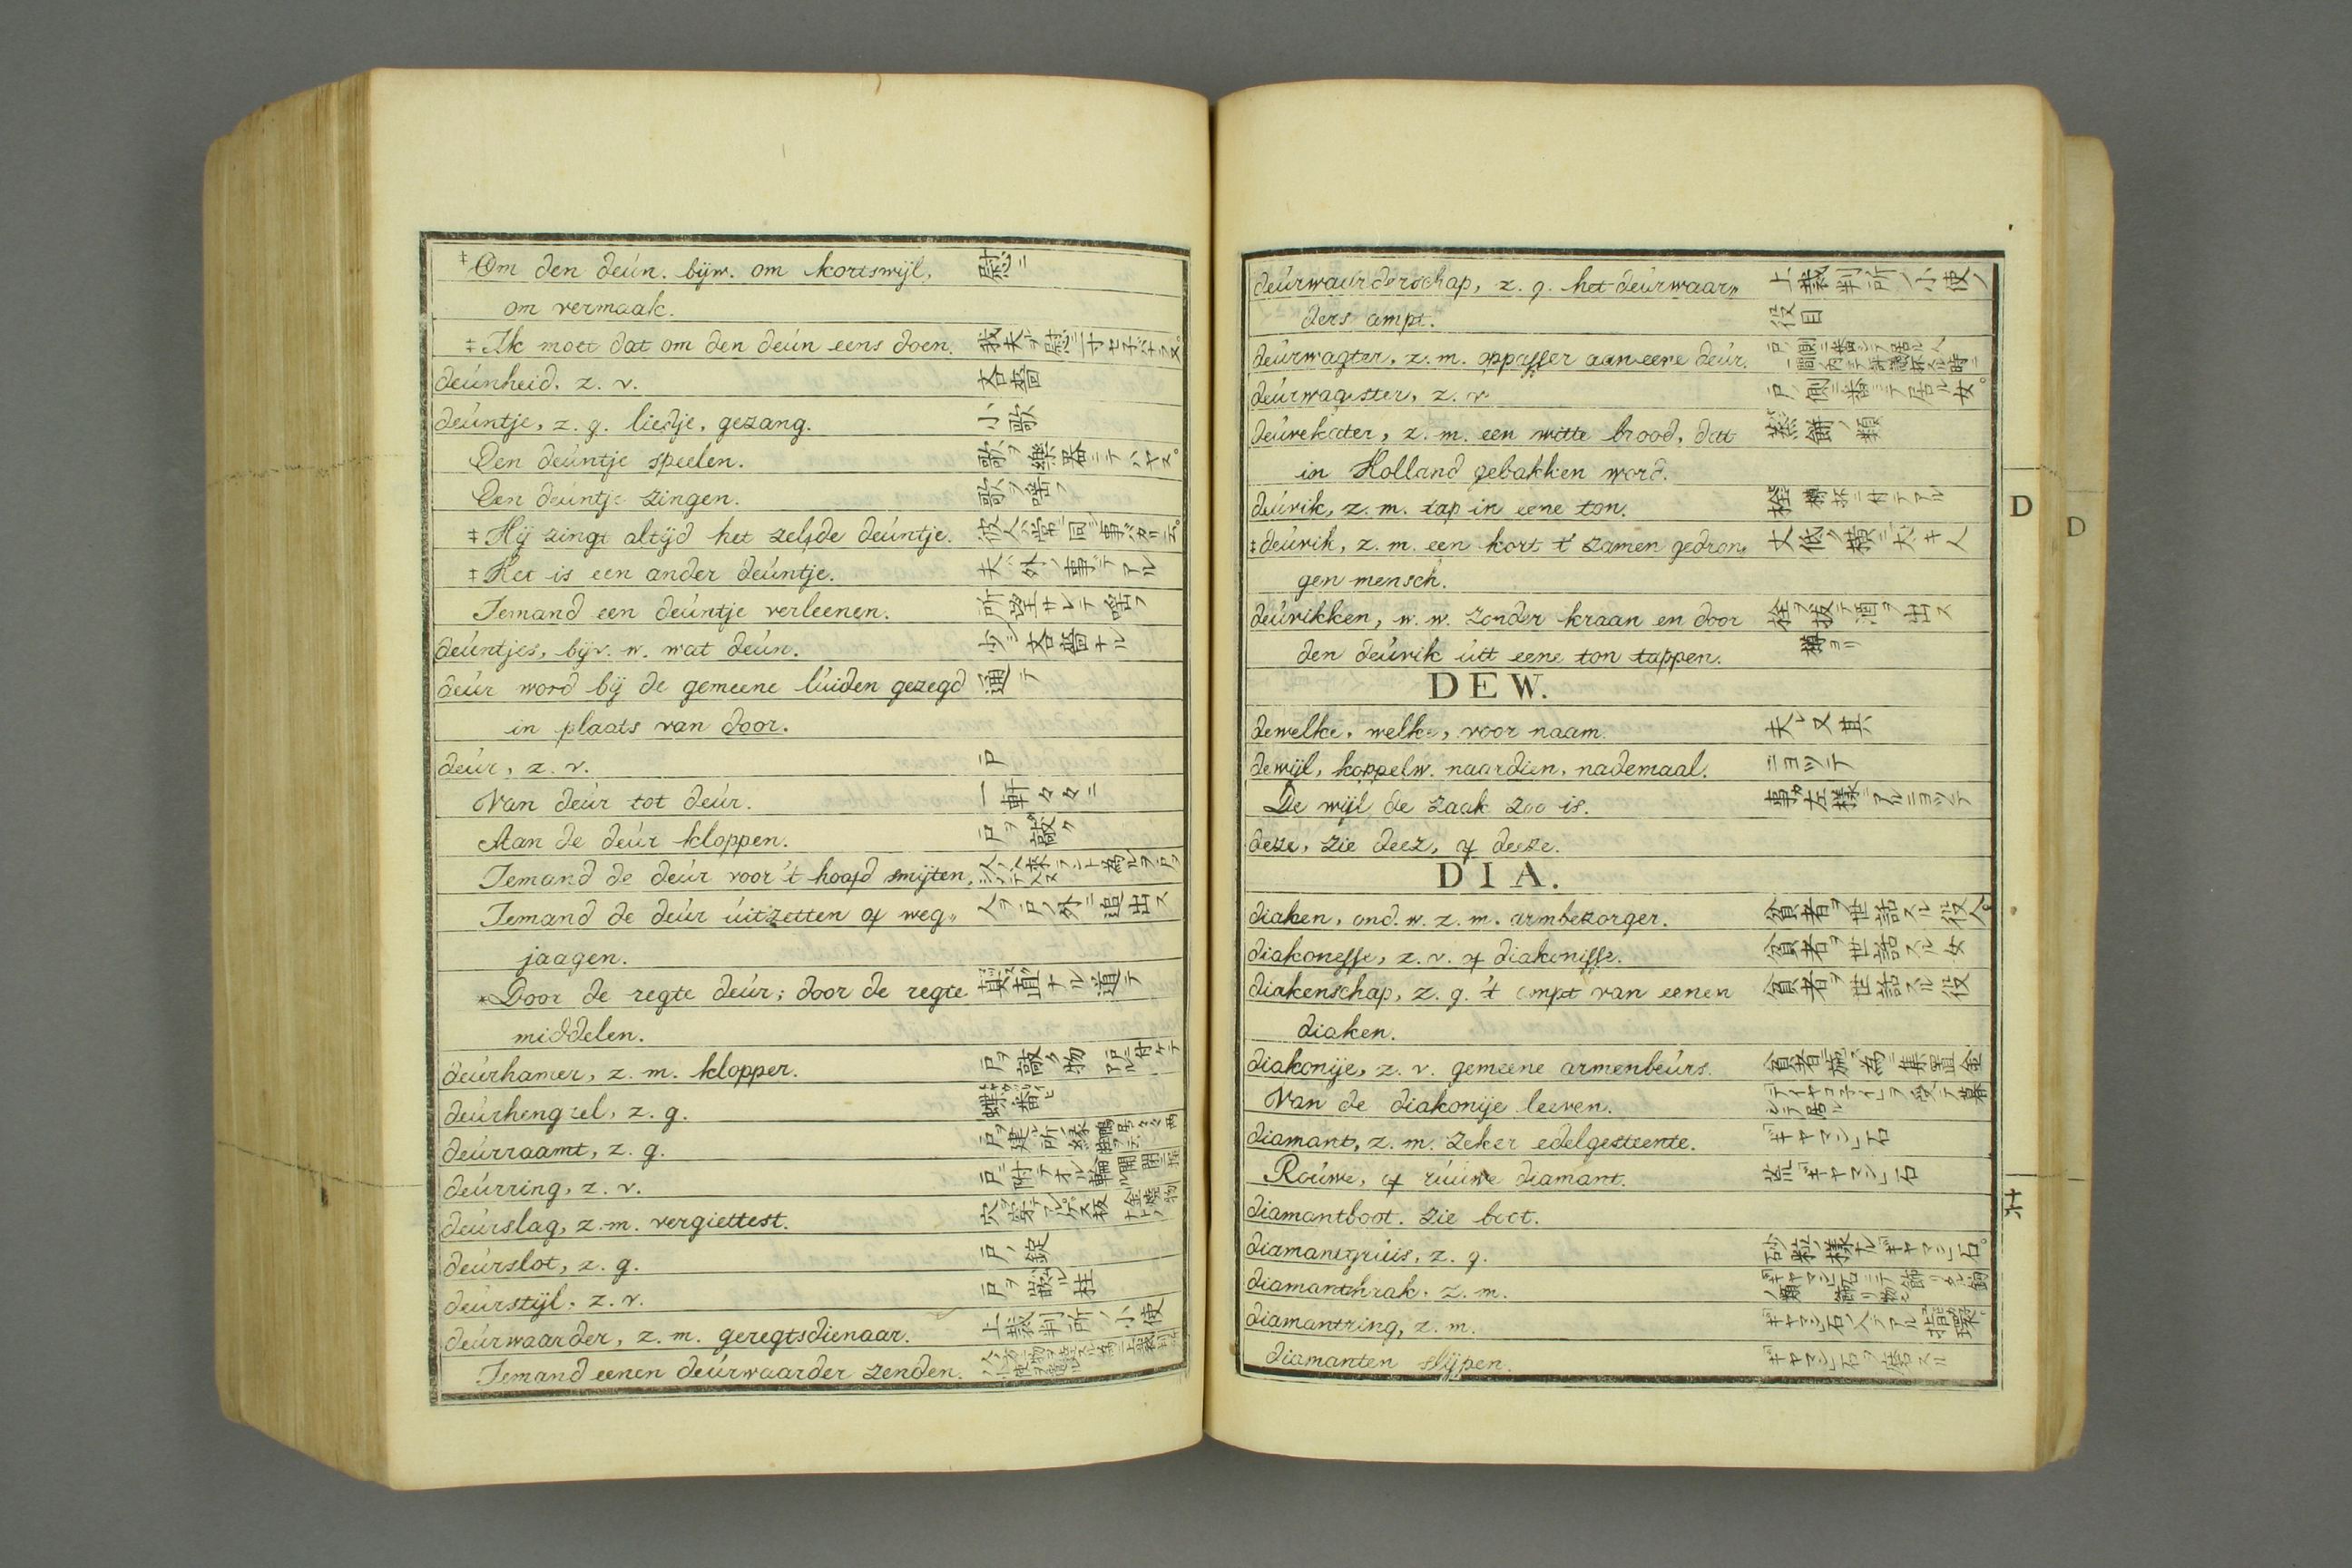 ‡Om den deún. bijw. om kortswijl, 慰ニ
om vermaak.
‡Ik moet dat om den deún eens doen. 我夫ヲ慰ニ
deúnheid, z. v. 吝嗇
deúntje, z. g. liedje, gezang. 小歌
Een deúntje speelen. 歌ヲ樂器ニテハヤス。
Een deúntje zingen. 歌ヲ唱フ
‡Hij zingt altijd het zelfde deúntje. 彼人ハ常ニ同シ事バカリ云。
‡Het is een ander deúntje. 夫ハ外ノ事デアル
Iemand een deúntje verleenen. 所望サレテ唱フ
deúntjes, bijv. w. wat deún. 少シ吝嗇ナル
deúr word bij de gemeene lúiden gezegd 通テ
in plaats van door.
deúr, z. v. 戸
Van deúr tot deúr. 一軒々々ニ
Aan de deúr kloppen. 戸ヲ敲ク
Iemand de deúr voor 't hoofd smijten,
Iemand de deúr úitzetten of weg„ 人ヲ戸ノ外ニ追出ス
jaagen.
*Door de regte deúr; door de regte 真直ナル道テ
middelen.
deúrhamer, z. m. klopper. 戸ヲ敲ク物 戸ニ付ケテアル
deúrhengzel, z. g. 蝶番ヒ
deúrraamt, z. g. 戸ヲ建ル所ノ縁
deúrring, z. v. 戸ニ附テオル輪
deúrslag, z. m. vergiettest.
deúrslot, z. g. 戸ノ錠
deúrstijl, z. v. 戸ヲ嵌ル柱
deúrwaarder, z. m. geregtsdienaar. 上裁判所ノ小使
Iemand eenen deúrwaarder zenden.
deúrwaarderschap, z. g. het deúrwaar„ 上裁判所ノ小使ノ
ders ampt. 役目
deúrwagter, z. m. oppasser aan eene deúr. 戸ノ側ニ番シテ居ル人
deúrwagster, z. v. 戸ノ側ニ番シテ居ル女。
deúrekater, z. m. een witte brood, datt 蒸餅ノ類
in Holland gebakken word.
deúrik, z. m. tap in eene ton. 栓 樽抔ニサテアル
‡deúrik, z. m. een kort t' zamen gedron„ 丈低ク横ニ大キ人
gen mensch.
deúrikken, w. w. zonder kraan en door 栓ヲ抜テ酒ヲ出ス
den deúrik úit eene ton tappen. 樽ヨリ
DEW.
dewelke, welke, voor naam. 夫レ又其
dewijl, koppelw. naardien, nademaal. ニヨツテ
De wijl de zaak zoo is. 事ガ左様デアルニヨツテ
deze, zie deez, of deeze.
DIA.
diaken, ond. w. z. m. armbezorger. 貧者ヲ世話スル役人。
diakonesse, z. v. of diakenisse. 貧者ヲ世話スル女
diakenschap, z. g. 't ampt van eenen 貧者ヲ世話スル役
diaken.
diakonije, z. v. gemeene armenbeúrs. 貧者ニ施ス為ニ集置金
Van de diakonije leeven.
diamant, z. m. zeker edelgesteente. 「ギヤマン」石
Roúwe, of rúúwe diamant. 荒「ギヤマン」石
diamantboot. zie boot.
diamantgrúis, z. g. 砂粒ノ様ナル「ギヤマン」石。
diamanthaak. z. m.
diamantring, z. m. 「ギヤマン」石ノ入テアル指環。
diamanten slijpen. 「ギヤマン」石ヲ磨スル
D
D